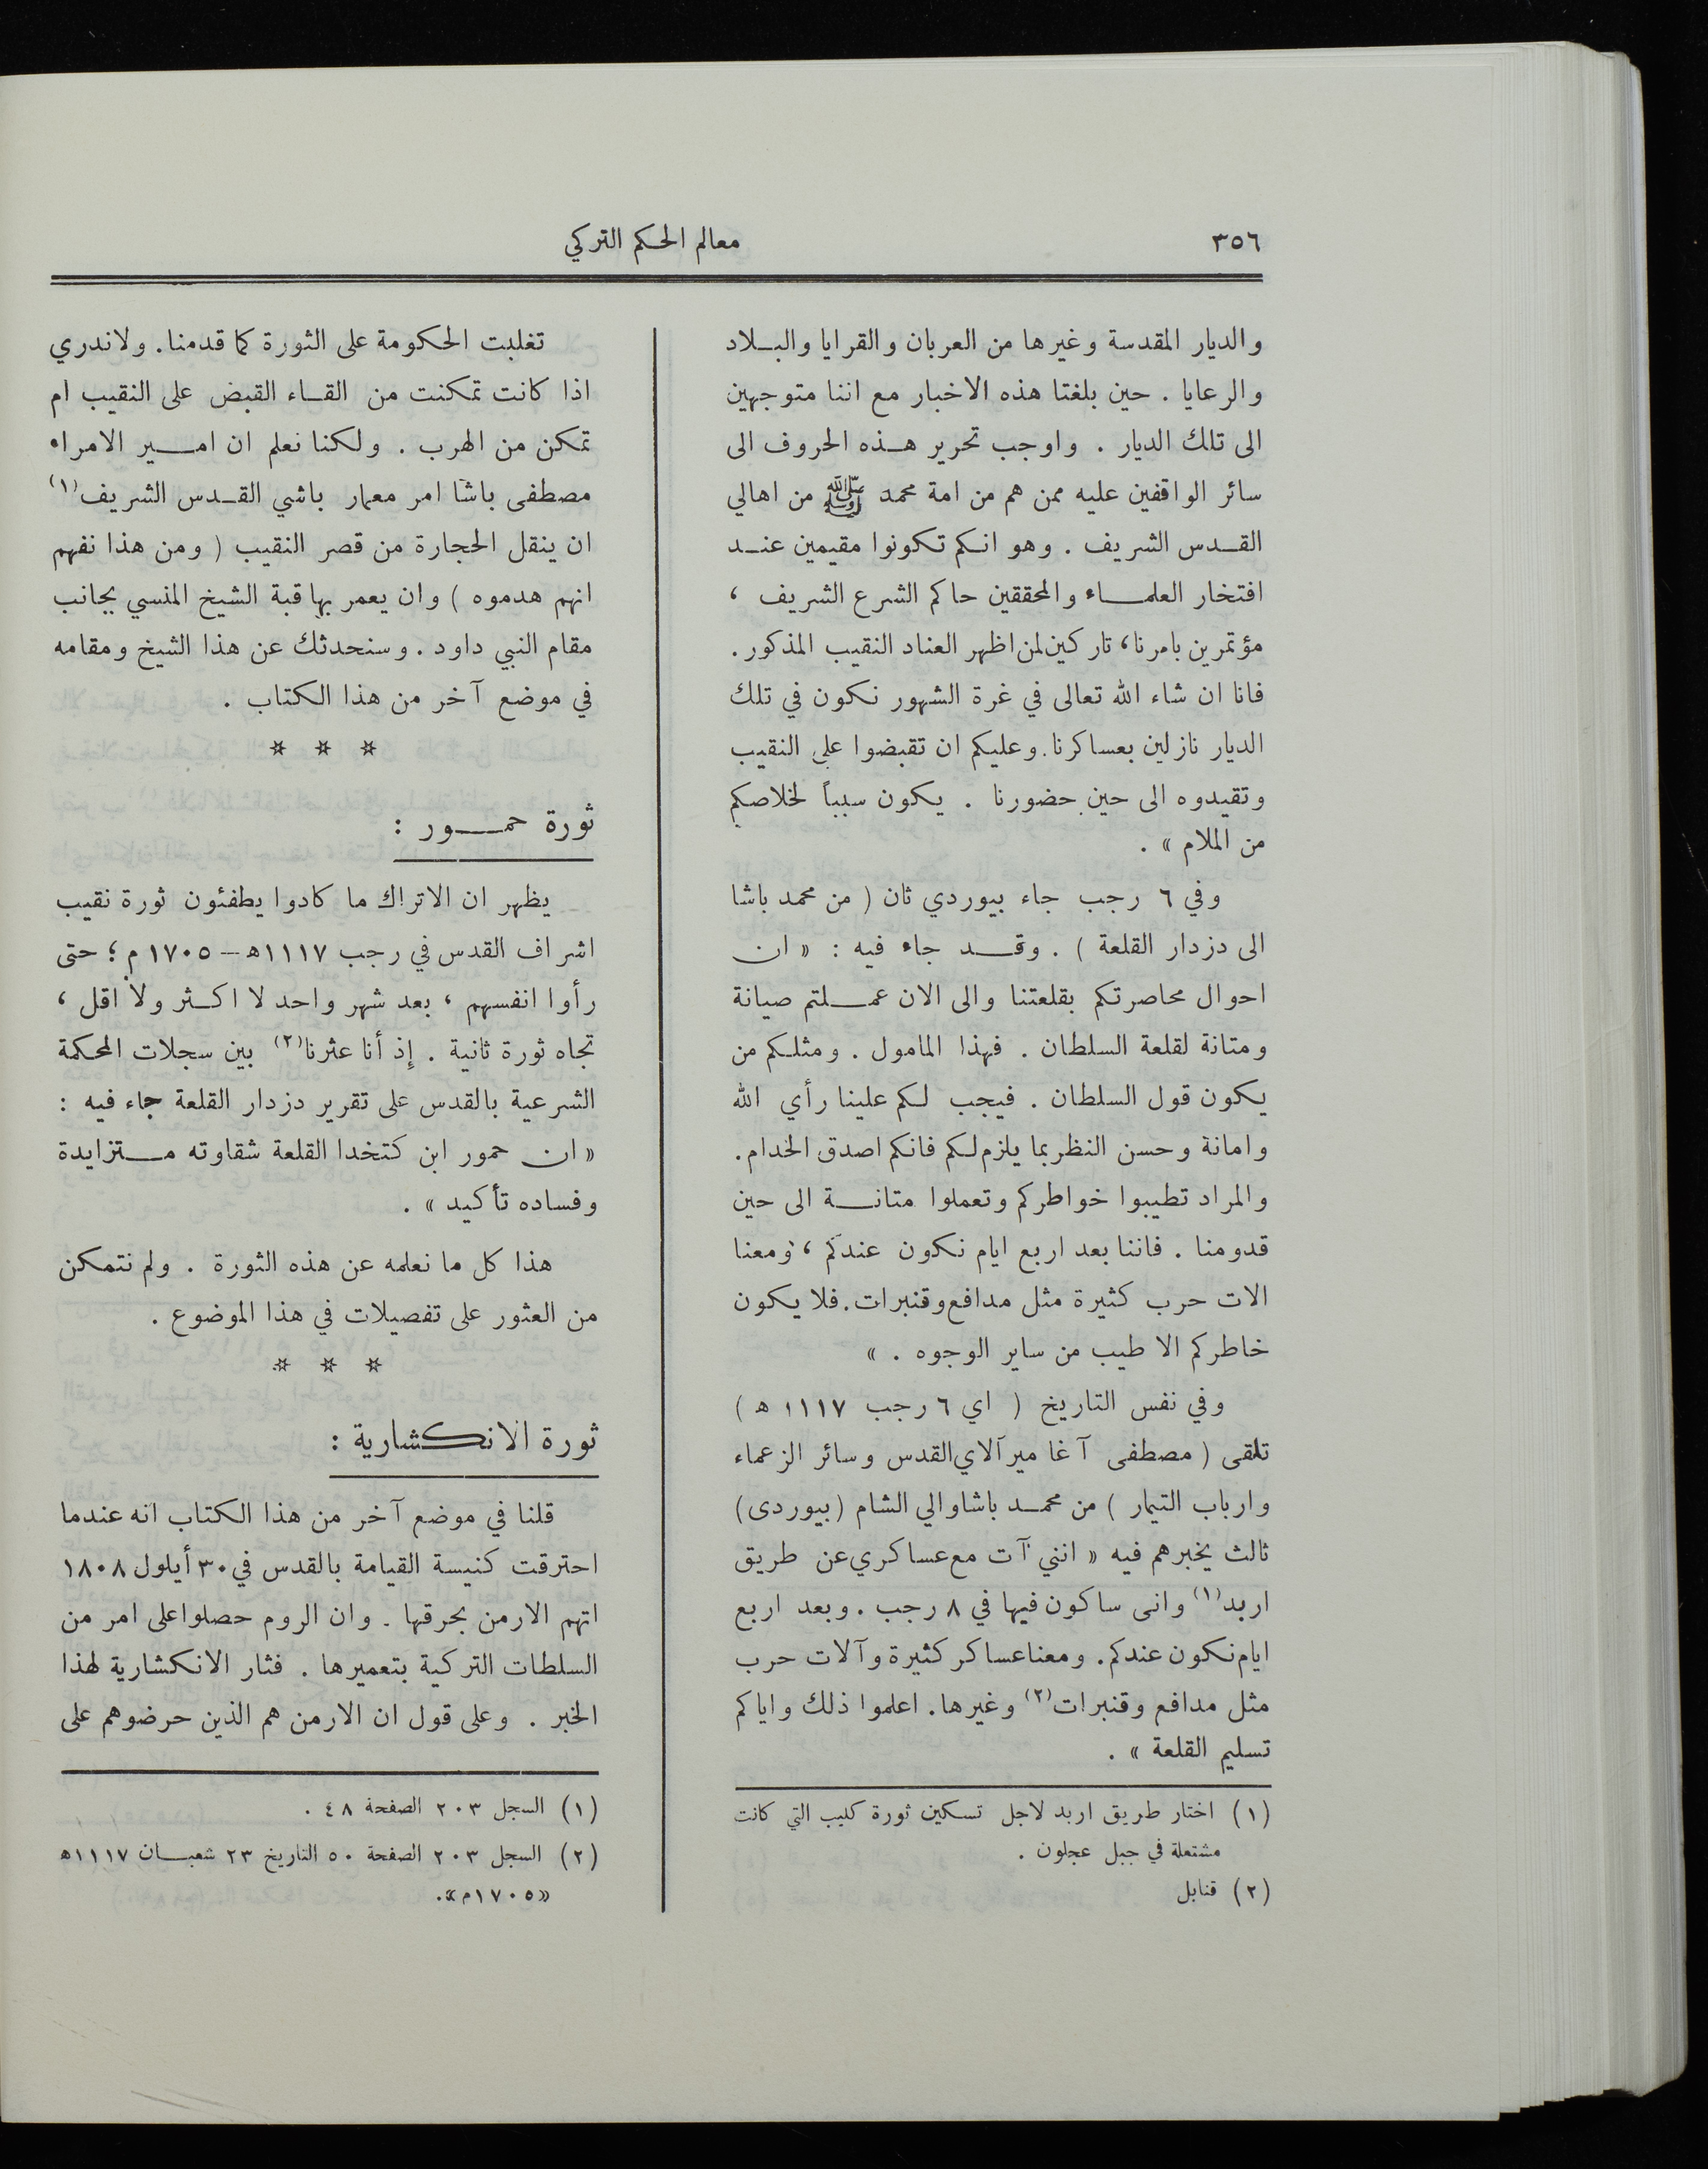 ٣٥٦
معالم الحكم التركي
والديار المقدسة وغيرها من العربان والقرايا والبلاد
والرعايا . حين بلغتا هذه الاخبار مع اننا متوجهين
الى تلك الديار . واوجب تحرير هذه الحروف الى
سائر الواقفين عليه ممن هم من امة محمد ﷺ من اهالي
القدس الشريف . وهو انكم تكونوا مقيمين عند
افتخار العلماء والمحققين حاكم الشرع الشريف ،
مؤتمرين بامرنا، تاركين لمن اظهر العناد النقيب المذكور.
فانا ان شاء الله تعالى في غرة الشهور نكون في تلك
الديار نازلين بعساكرنا. وعليكم ان تقبضوا على النقيب
وتقيدوه الى حين حضورنا . يكون سبباً لخلاصكم
من الملام » .
وفي ٦ رجب جاء بيوردي ثان ( من محمد باشا
الى دزدار القلعة ) . وقد جاء فيه : « ان
احوال محاصرتكم بقلعتنا والى الان عملتم صيانة
ومتانة لقلعة السلطان . فهذا المامول . ومثلكم من
يكون قول السلطان . فيجب لكم علينا رأي الله
وامانة وحسن النظر بما يلزم لكم فانكم اصدق الخدام.
والمراد تطيبوا خواطركم وتعملوا متانة الى حين
قدومنا . فاننا بعد اربع ايام نكون عندكم ، ومعنا
الات حرب كثيرة مثل مدافع وقنبرات. فلا يكون
خاطركم الا طيب من ساير الوجوه . »
وفي نفس التاريخ ( اي ٦ رجب ١١١٧ ه )
تلقى ( مصطفى آغا ميرآلاي القدس وسائر الزعماء
وارباب التيمار ) من محمد باشا والي الشام (بيوردى)
ثالث يخبرهم فيه « انني آت مع عساكري عن طريق
اربد(١) وانى ساكون فيها في ٨ رجب . وبعد اربع
ايام نكون عندكم. ومعنا عساكر كثيرة وآلات حرب
مثل مدافع وقنبرات(٢) وغيرها. اعلموا ذلك واياكم
تسليم القلعة » .
(١) اختار طريق اربد لاجل تسكين ثورة كليب التي كانت
مشتعلة في جبل عجلون .
(٢) قنابل
تغلبت الحكومة على الثورة كما قدمنا. ولاندري
اذا كانت تمكنت من القاء القبض على النقيب ام
تمكن من الهرب . ولكنا نعلم ان امير الامراء
مصطفى باشا امر معمار باشي القدس الشريف(١)
ان ينقل الحجارة من قصر النقيب ( ومن هذا نفهم
انهم هدموه ) وان يعمر بها قبة الشيخ المنسي بجانب
مقام النبي داود . وسنحدثك عن هذا الشيخ ومقامه
في موضع آخر من هذا الكتاب .
* * *
ثورة حمور :
يظهر ان الاتراك ما كادوا يطفئون ثورة نقيب
اشراف القدس في رجب ١١١٧ه – ١٧٠٥ م ؛ حتى
رأوا انفسهم ، بعد شهر واحد لا اكثر ولا اقل ،
تجاه ثورة ثانية . إذ أنا عثرنا(٢) بين سجلات المحكمة
الشرعية بالقدس على تقرير دزدار القلعة جاء فيه :
« ان حمور ابن كتخدا القلعة شقاوته متزايدة
وفساده تأكيد » .
هذا كل ما نعلمه عن هذه الثورة . ولم نتمكن
من العثور على تفصيلات في هذا الموضوع .
* * *
ثورة الانكشارية :
قلنا في موضع آخر من هذا الكتاب انه عندما
احترقت كنيسة القيامة بالقدس في ٣٠ أيلول ١٨٠٨
اتهم الارمن بحرقها . وان الروم حصلوا على امر من
السلطات التركية بتعميرها . فثار الانكشارية لهذا
الخبر . وعلى قول ان الارمن هم الذين حرضوهم على
(١) السجل ٢٠٣ الصفحة ٤٨ .
(٢) السجل ٢٠٣ الصفحة ٥٠ التاريخ ٢٣ شعبان ١١١٧ه
«١٧٠٥م».